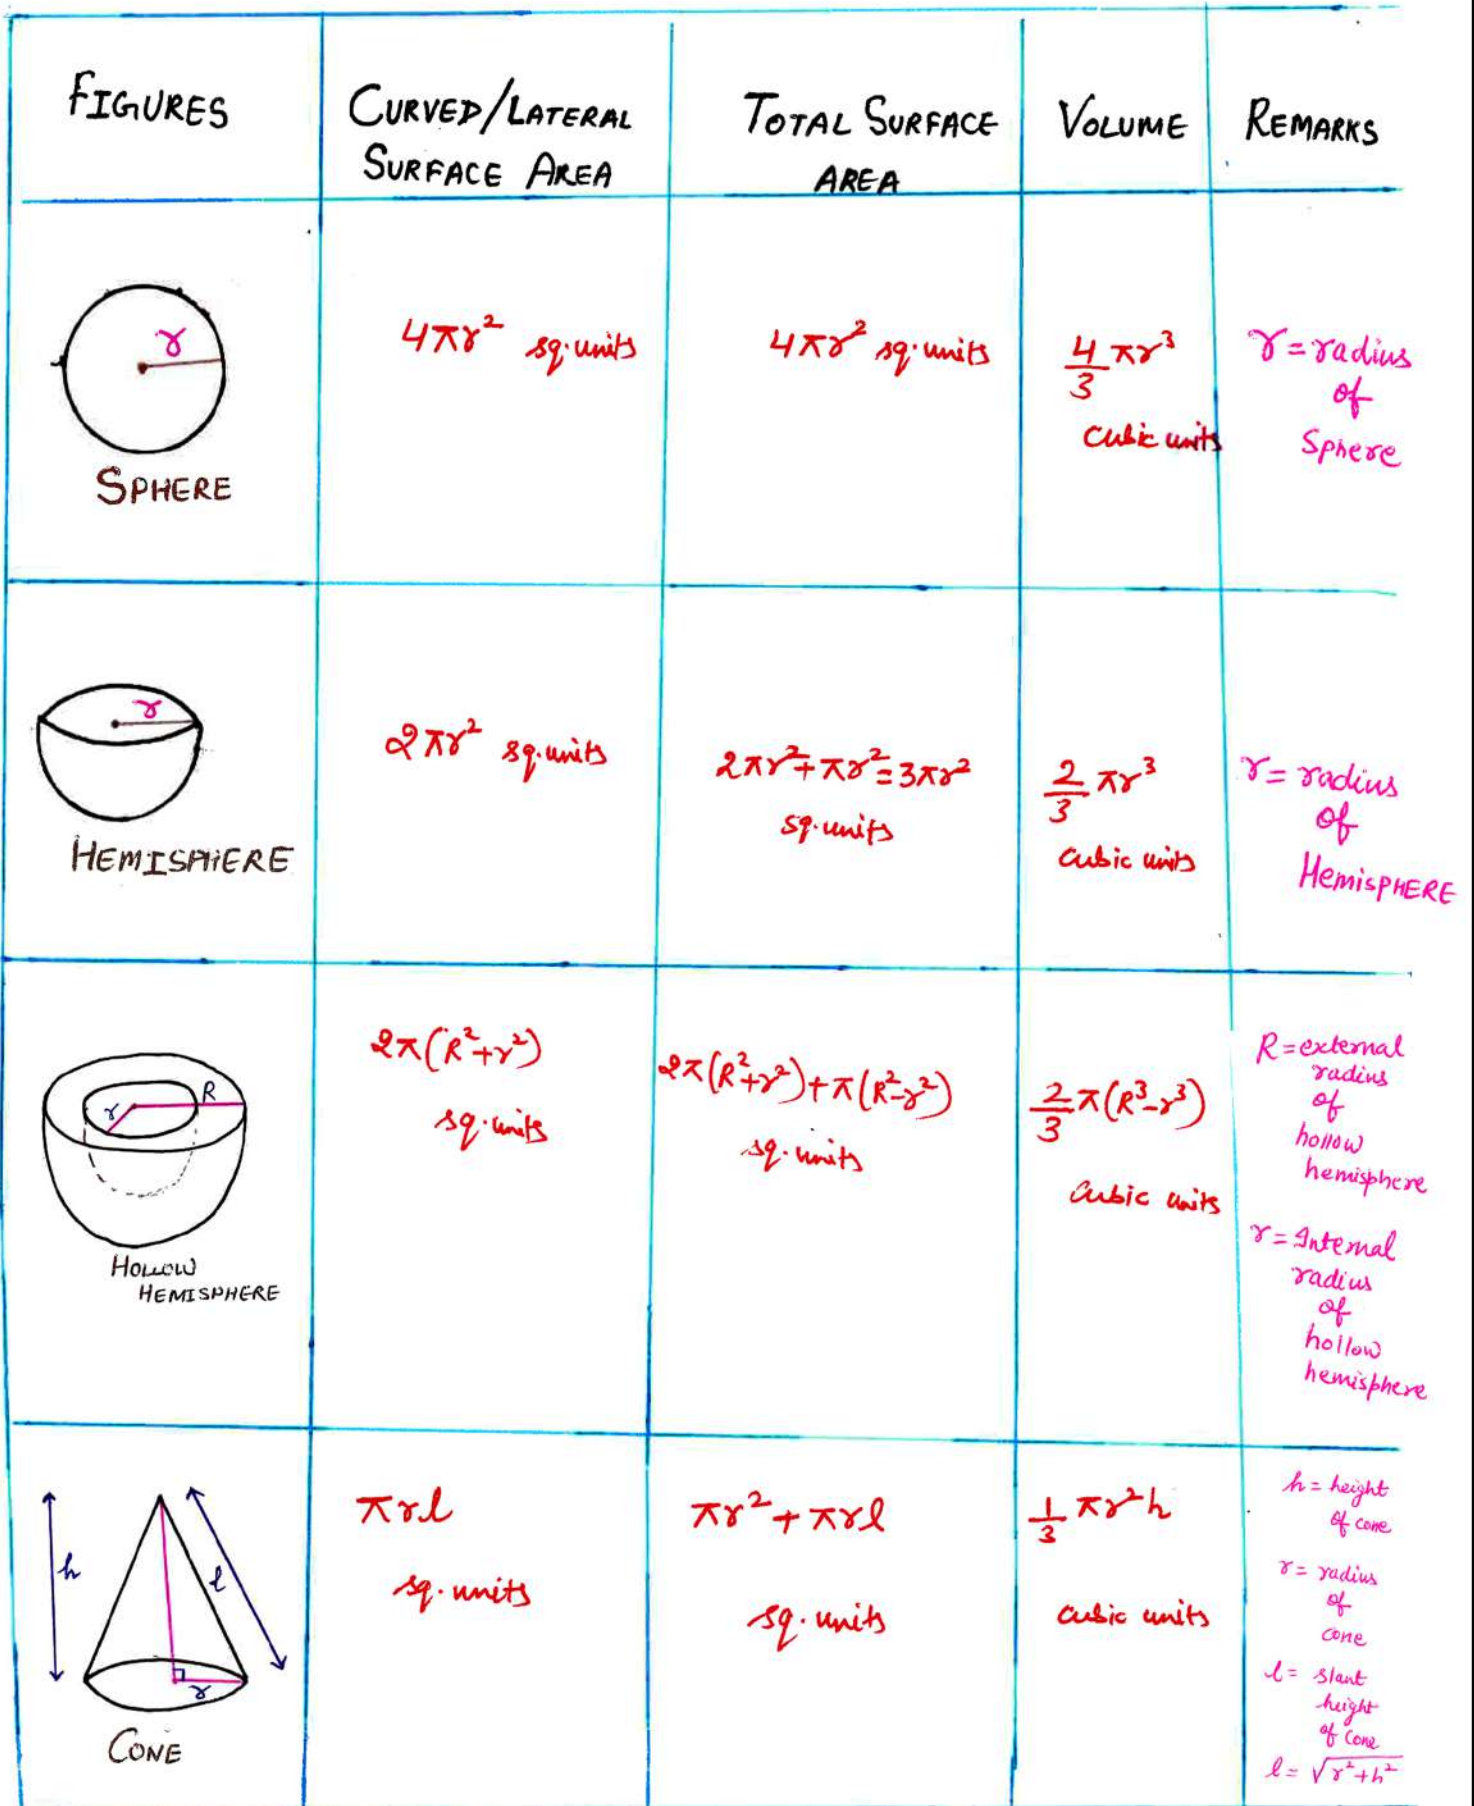 FIGURES
CURVED/LATERAL
SURFACE AREA
TOTAL SURFACE
AREA
VOLUME
REMARKS
r
SPHERE
4πr² sq.units
4πr² sq.units
4/3 πr³
cubic units
r = radius
of
Sphere
r
HEMISPHERE
2πr² sq.units
2πr²+πr²=3πr²
sq.units
2/3 πr³
cubic units
r = radius
of
HemisPHERE
r R
HOLLOW
HEMISPHERE
2π(R²+r²)
sq.units
2π(R²+r²)+π(R²-r²)
sq.units
2/3 π(R³-r³)
cubic units
R = external
radius
of
hollow
hemisphere
r = Internal
radius
of
hollow
hemisphere
h
l
r
CONE
πrl
sq.units
πr²+πrl
sq.units
1/3 πr²h
cubic units
h = height
of cone
r = radius
of
cone
l = slant
height
of cone
l = √r²+h²